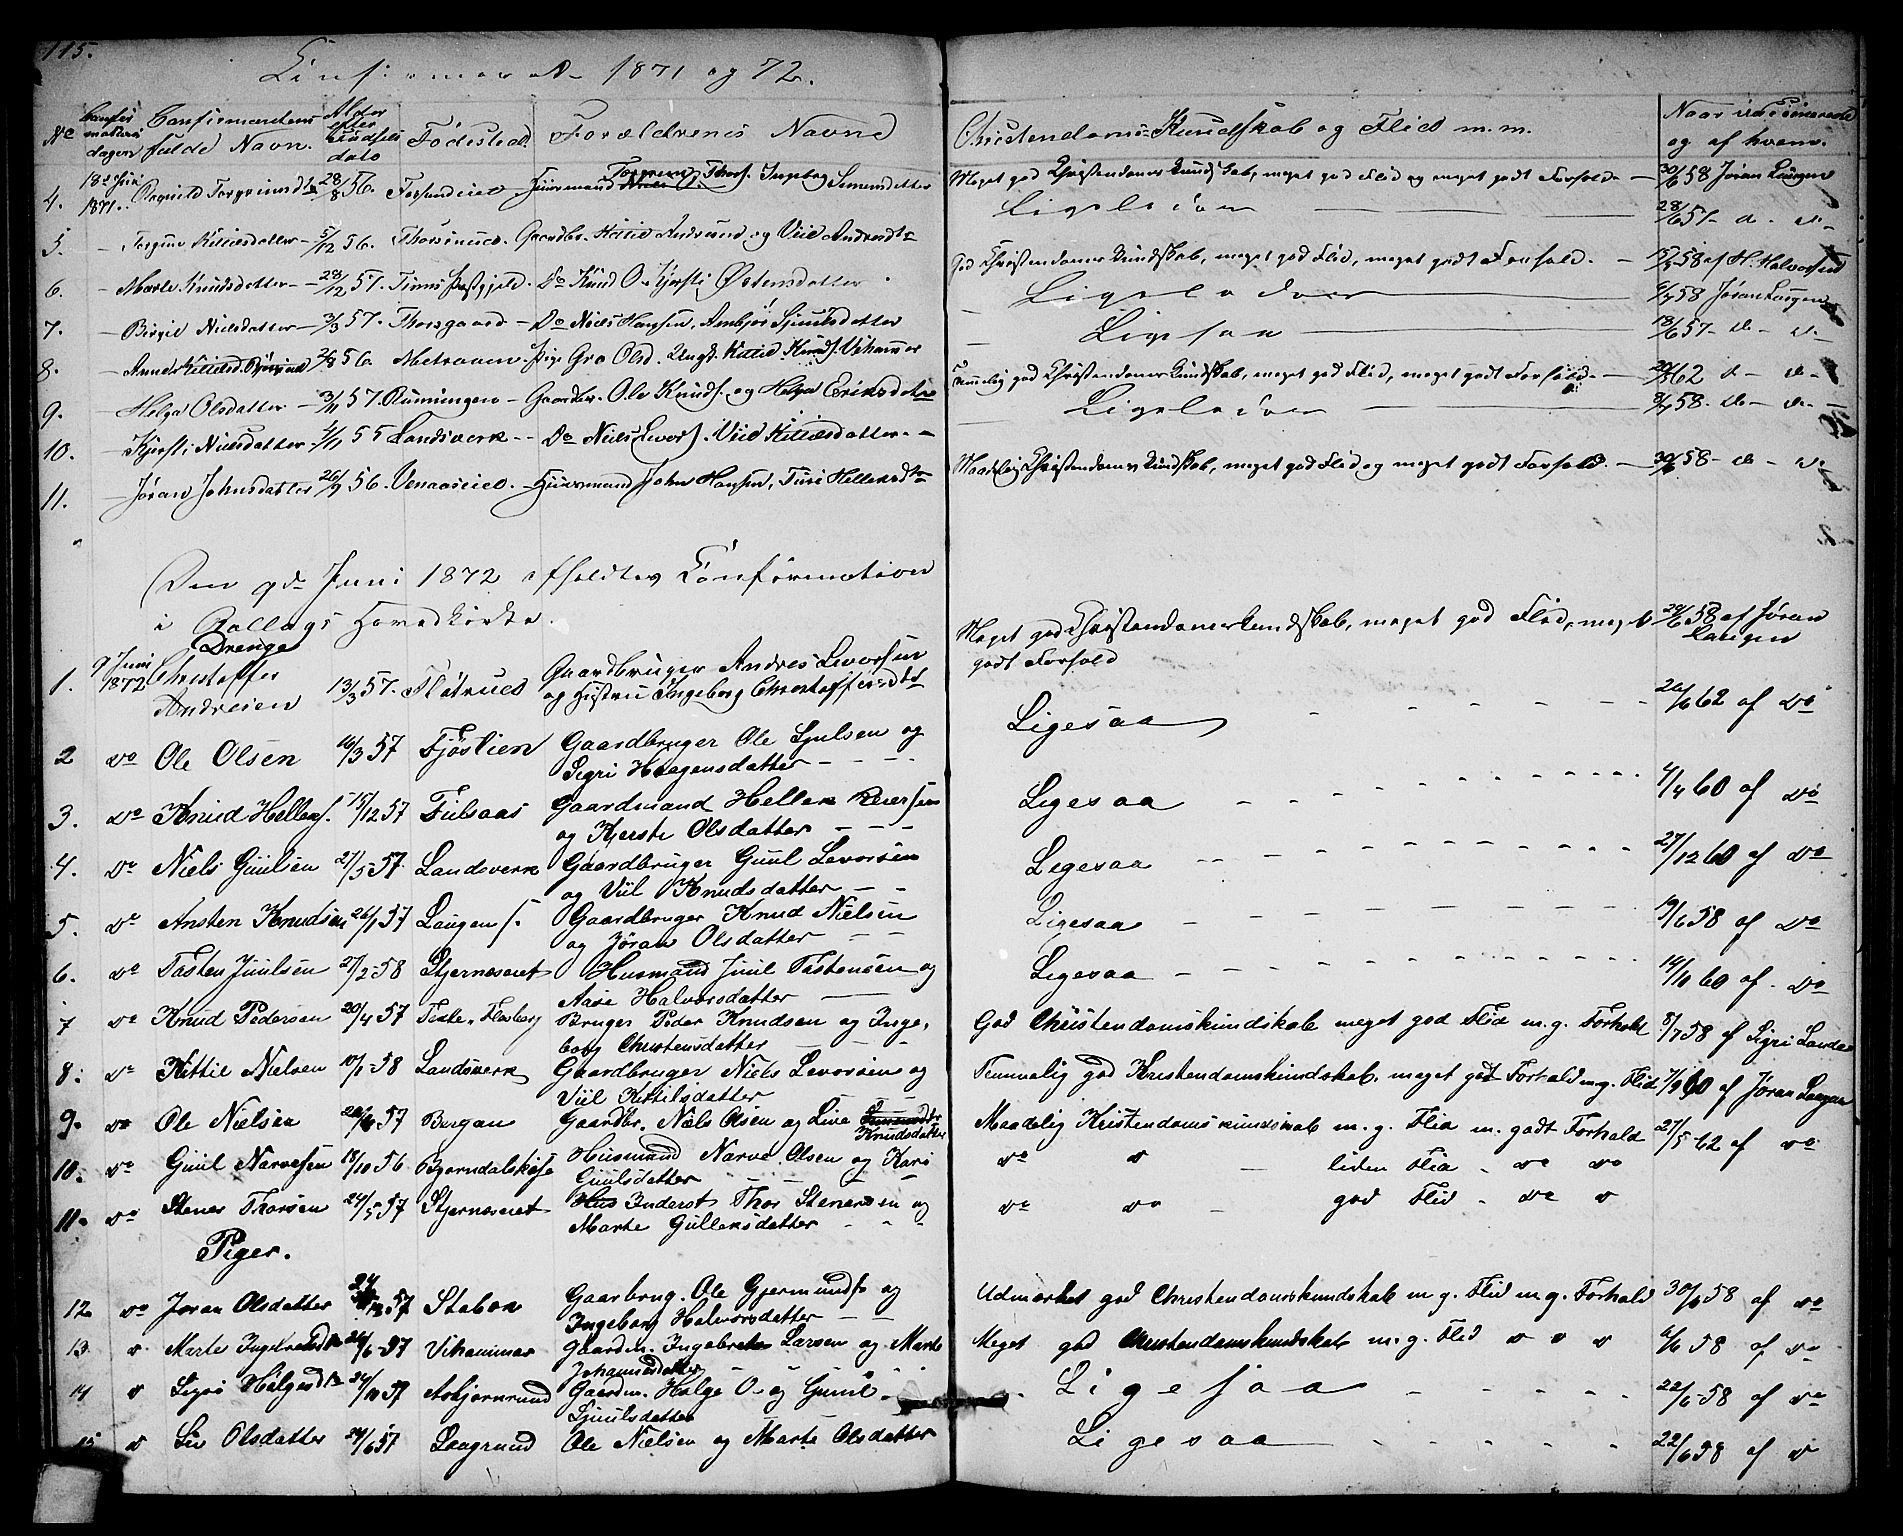 115.
Confirmerede 1871 og 72.
No Confirmationsdagen Confirmantens fulde Navn. Alder efter Fødselsdato Fødested. Forældrenes Navne Christendoms-Kundskab og Flid m.m. Naar vaccinerede og af hvem.
4. 18de Juni 1871. Torgrimsdtr 28/8 56. Huusmand Torgrim Thors. Ingebog Simensdatter Meget god Christendomskundskab, meget god Flid og meget godt Forhold. — 30/6 58 Jøran Laugen
5. — Kittilsdatter — 5/12 56. Gaardbr. Kittil og Andersdtr Ligeledes — 28/6 57 - do - do -
6. — Marte Knudsdatter — 28/12 57. Tinns Præstgjeld. Do Knud O. Kjersti Østensdatter God Christendomskundskab, meget god Flid, meget godt Forhold. — 15/7 58 af H. Halvorsen
7. — Birgit Nielsdatter — 3/3 57. Thorsgaard — Do Niels Hansen, Ambjør Sjuulsdatter Ligeledes — 6/7 58 Jøran Laugen
8. — Anne Kittilsd. 56. Pige Gro Olsd. Ungk. Kittil Knuds. Vihammer Ligesaa — 18/6 57 - do - do -
9. — Helga Olsdatter — 3/11 57. — Gaardbr. Ole Knuds. og Helga Eriksdatter Temmelig god Christendomskundskab, meget god Flid, meget godt Forhold. — 62 do - do -
10. — Kjersti Nielsdatter 4/11 55 Landsverk — Do Niels Levors. Viil Kittilsdatter — Ligeledes — 8/7 58. do - do -
11. — Jøran Johnsdatter 26/9 56. Venaaseiet. — Huusmand John Hansen, Turi Helleksdtr Maadelig Christendomskundskab, meget god Flid og meget godt Forhold. — 30/6 58 - do - do -
Den 9de Juni 1872 afholdtes Confirmation
i Rollags Hovedkirke.
Drenge
1. 9 Juni 1872 Christoffer Andresen 13/3 57. Gaardbruger Andres Levorsen og Hustru Ingeborg Christoffersdtr Meget god Christendomskundskab, meget god Flid, meget godt Forhold 29/6 58 af Jøran Laugen
2 do Ole Olsen 16/3 57 Fjøslien Gaardbruger Ole Sjulsen og Sigri Haagensdatter — Ligesaa 26/6 62 af do
3. do Knud Helleks. 15/12 57 Fulsaas Gaardmand Hellek Reiersen og Kjersti Olsdatter — Ligesaa 4/4 60 af do
4. do Niels Guulsen 27/5 57 Landsverk Gaardbruger Guul Levorsen og Viil Knudsdatter — Ligesaa 27/12 60 af do
5. do Ansten Knudsen 26/1 57 Laugen s. Gaardbruger Knud Nielsen og Jøran Olsdatter — Ligesaa 19/6 58 af do
6. do Tosten Juulsen 27/2 58 Stjerneseret Husmand Juul Tostensen og Aase Halvorsdatter — Ligesaa 14/10 60 af do
7 do Knud Pedersen 20/4 57 Flesberg Bruger Peder Knudsen og Ingeborg Christensdatter God Christendomskundskab meget god Flid m. g. Forhold 8/7 58 af Sigri Lande
8. do Kittil Nielsen 10/1 58 Landsverk Gaardbruger Niels Levorsen og Viil Kittilsdatter Temmelig god Kristendomskundskab, meget godt Forhold m. g. Flid 7/9 60 af Jøran Laugen
9. do Ole Nielsen 57 Bergan Gaardbr. Niels Olsen og Live Knudsdatter Maadelig Kristendomskundskab m. g. Flid m. godt Forhold 27/5 62 af do
10. do Guul Narvesen 18/10 56 Bjørndalskaase Husmand Narve Olsen og Kari Guulsdatter do do — liden Flid - do do
11. do Stener Thorsen 24/5 57 Stjerneseret Hus Inderst Thor Stenersen og Marte Gulleksdatter do do — god Flid - do do
Piger.
12 do Joran Olsdatter 24/12 57 Stabæk Gaarbrug. Ole Gjermunds. og Ingeborg Halvorsdatter Udmærket god Christendomskundskab m g. Flid m. g. Forhold 30/6 58 af do
13 do Marte Ingebretsdtr 24/6 57 Vihammer Gaardm. Ingebret Larsen og Marte Johannesdatter Meget god Christendomskundskab m. g. Flid do do do 6/6 58 af do
14 do Sigri Helgesdtr 57 Asbjørnrud Gaardm. Helge O. og Gunil Sjuulsdatter Ligesaa 22/6 58 af do
15 do Siv Olsdatter 29/6 57 Laagrund Ole Nielsen og Marte Olsdatter Ligesaa 22/6 58 af do